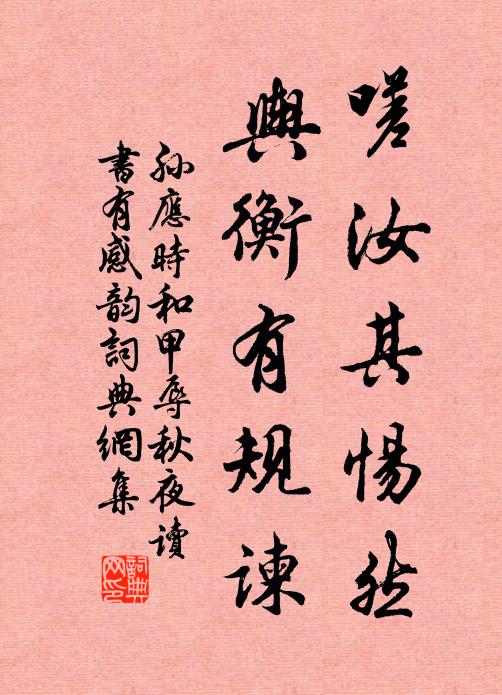 嗟汝其惕然
輿衡有規諫
孙應時和甲辱秋夜讀
書有感韵詞典網集
詞典网印